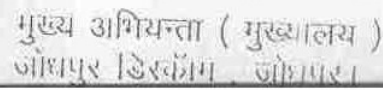 मुख्य अभियन्ता ( मुख्यालय )
जोधपुर डिस्कॉम , जोधपुर।